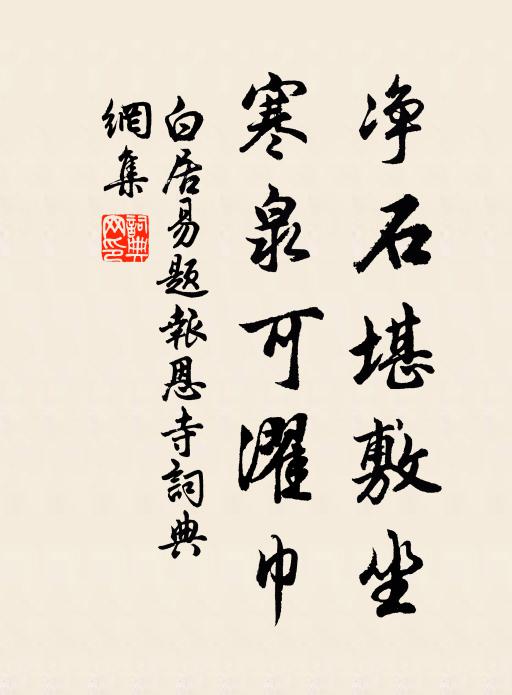 净石堪敷坐
寒泉可濯巾
白居易题報恩寺詞典
網集
詞典
网印